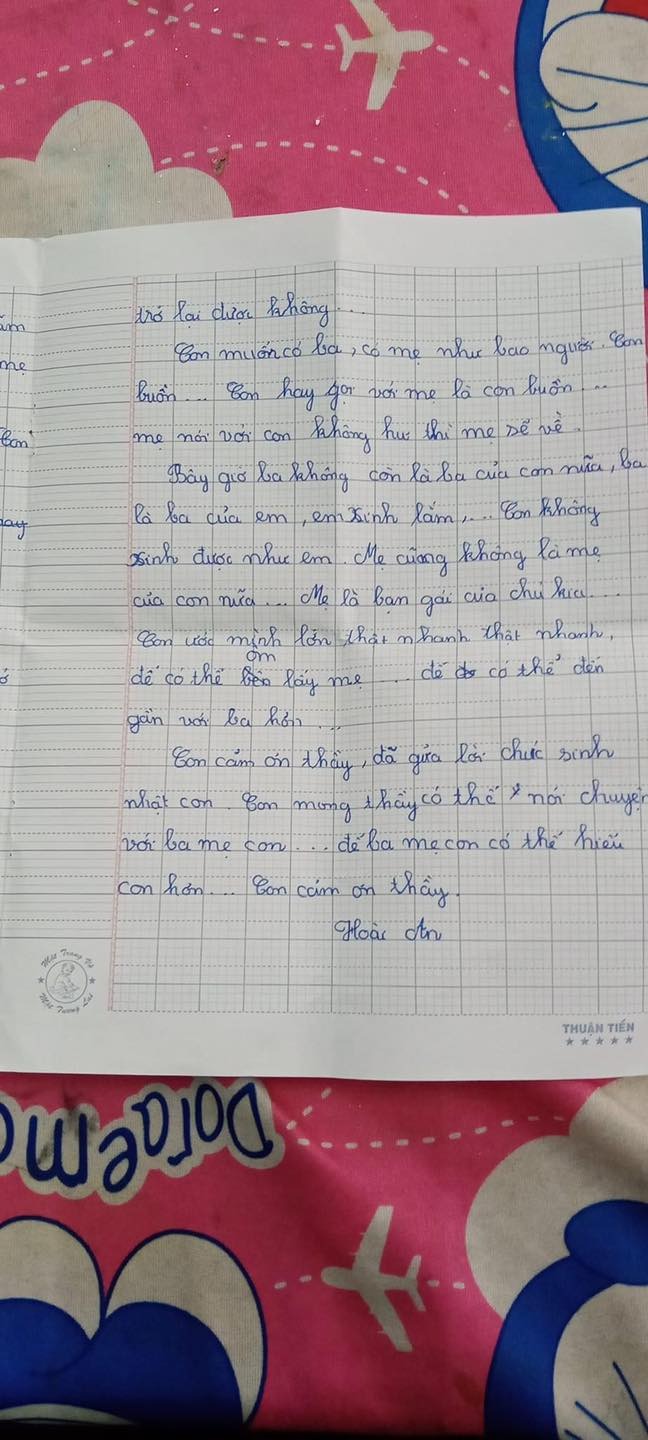 trở lại được không...
Con muốn có ba, có mẹ như bao người. Con
buồn... Con hay gọi với mẹ là con buồn...
mẹ nói với con không hư thì mẹ sẽ về.
Bây giờ ba không còn là ba của con nữa, ba
là ba của em, em xinh lắm,... Con không
xinh được như em. Mẹ cũng không là mẹ
của con nữa... Mẹ là bạn gái của chú kia...
Con ước mình lớn thật nhanh thật nhanh,
để có thể ôm lấy mẹ... để có thể đến
gần với ba hơn...
Con cảm ơn thầy, đã gửa lời chúc sinh
nhật con. Con mong thầy có thể nói chuyện
với ba mẹ con... để ba mẹ con có thể hiểu
con hơn... Con cảm ơn thầy.
Hoài An
ăm
mẹ
Con
ay
Một Trang Vở
Một Tương Lai
THUẬN TIẾN
Doraemo